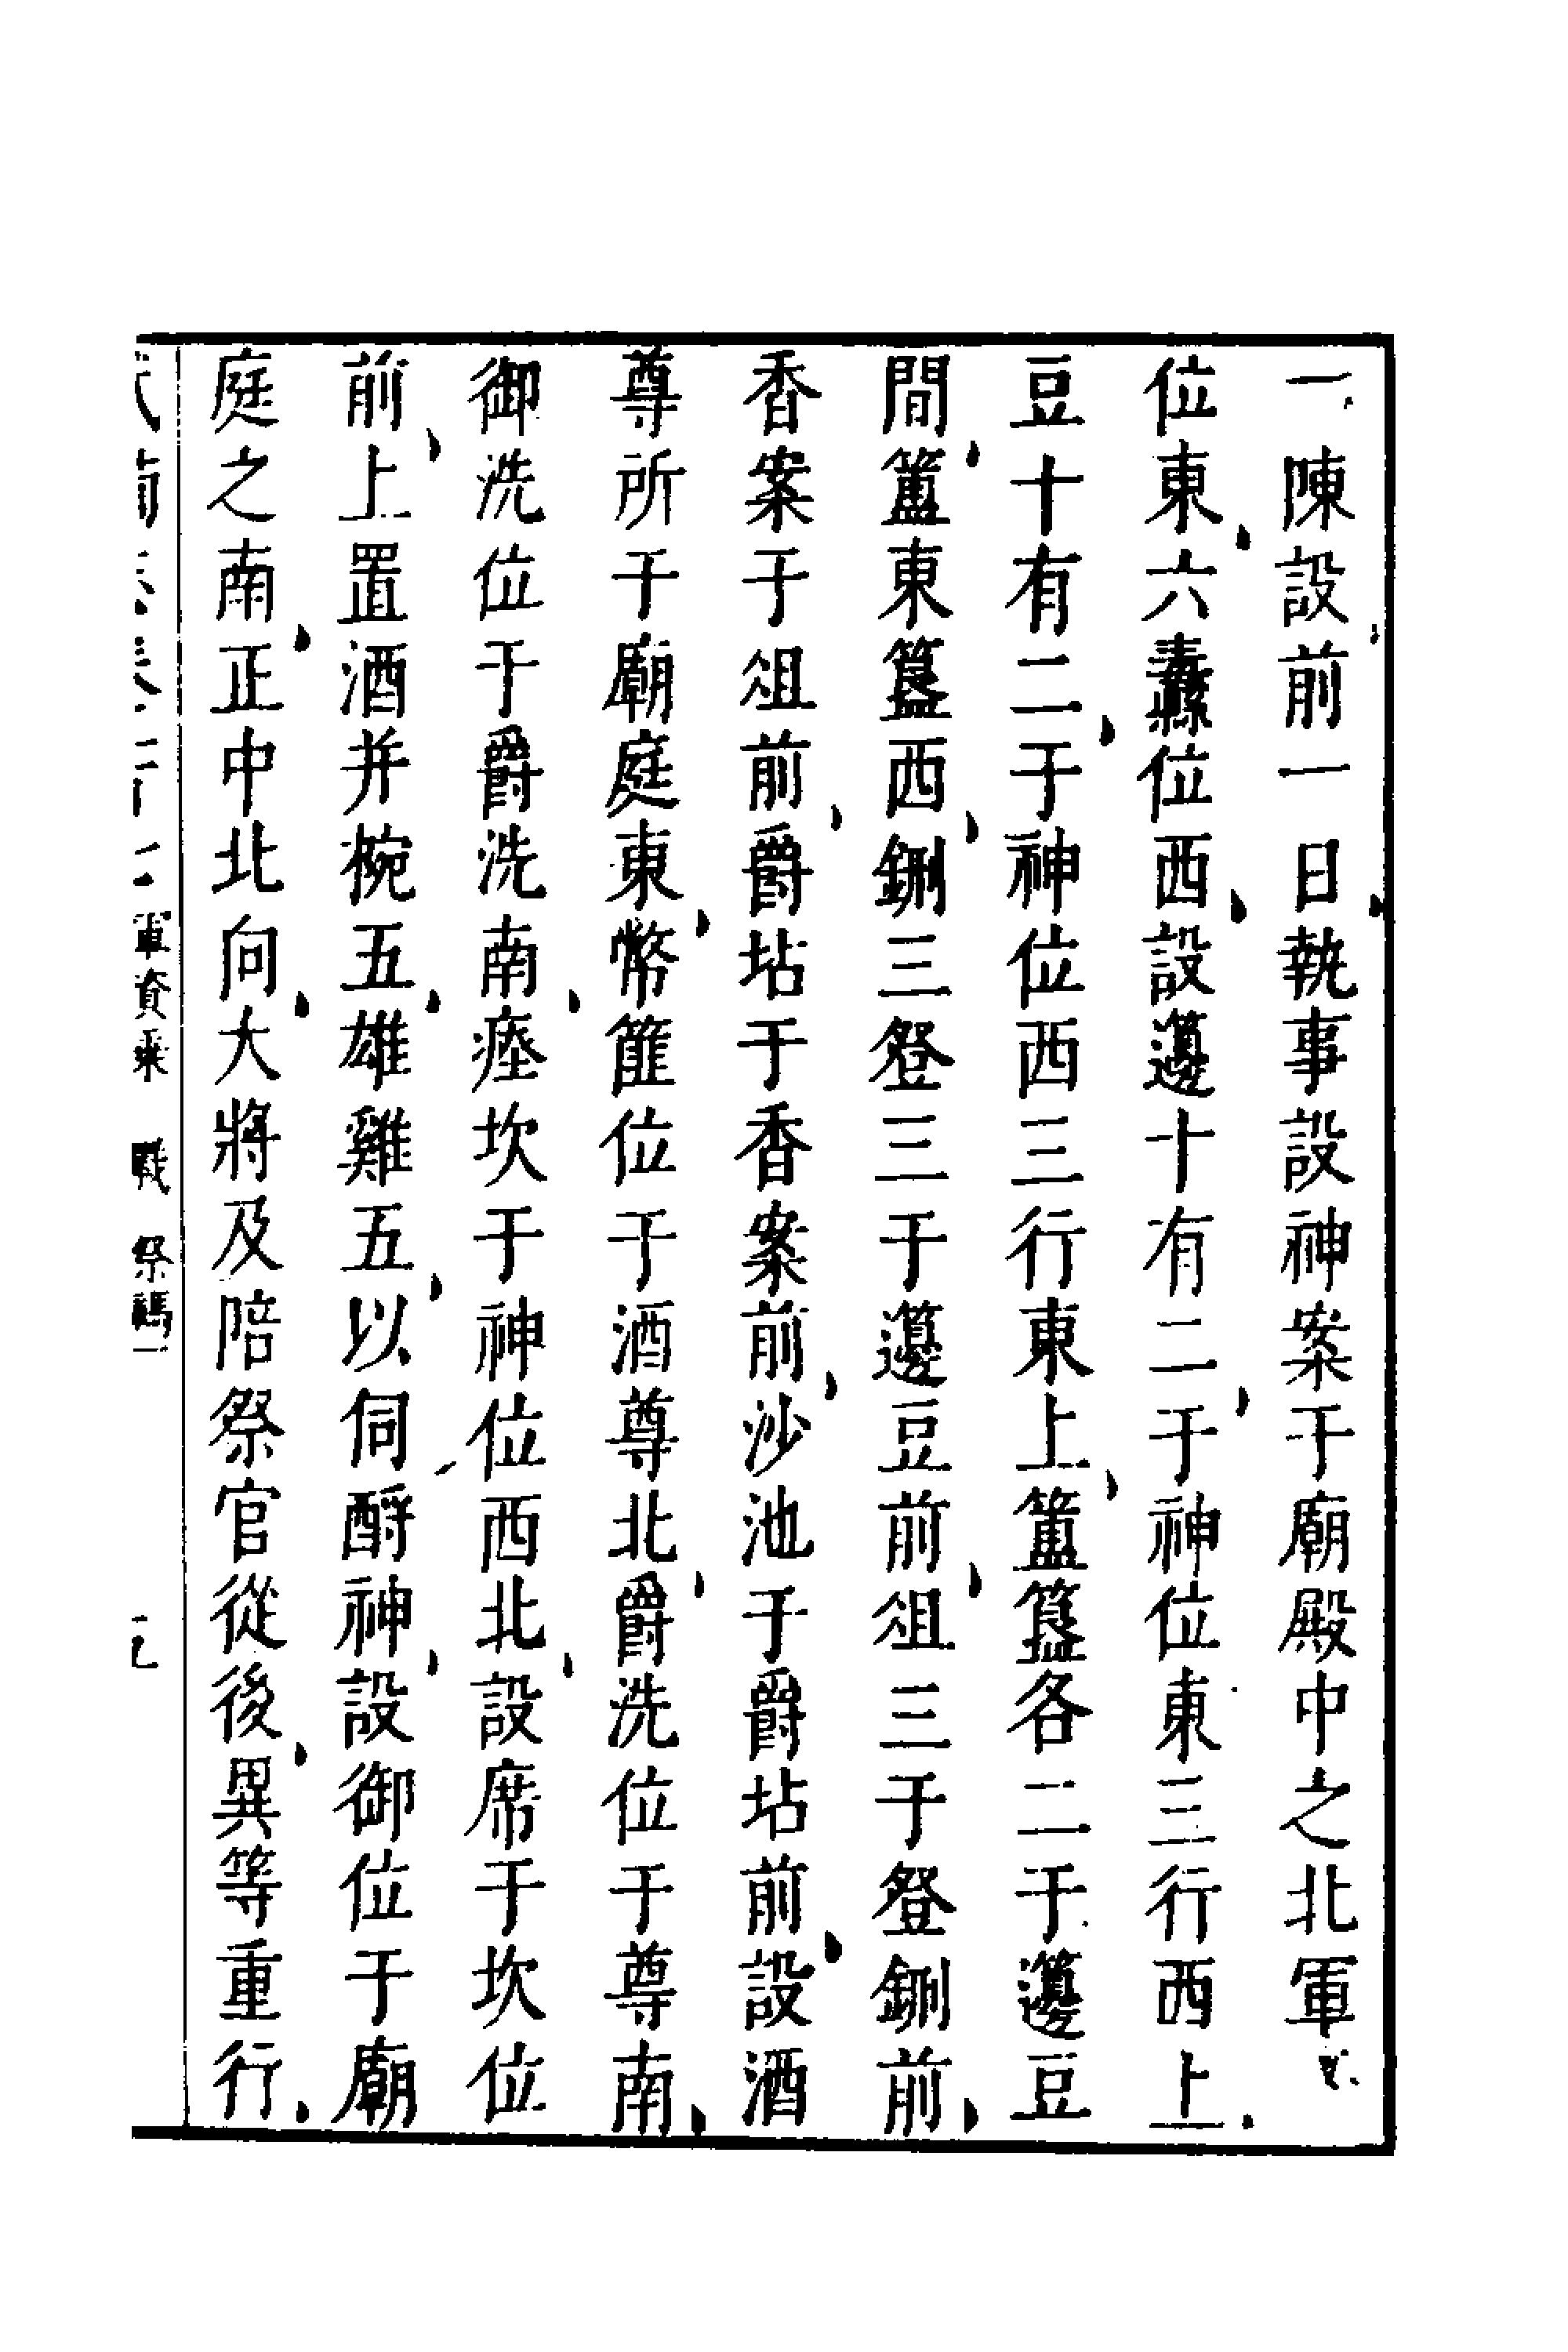 一陳設前一日執事設神案于廟殿中之北軍
位東六纛位西設籩十有二于神位東三行西上
豆十有二于神位西三行東上簠簋各二于籩豆
間簠東簋西鉶三登三于籩豆前俎三于登鉶前
香案于俎前爵坫于香案前沙池于爵坫前設酒
尊所于廟庭東幣篚位于酒尊北爵洗位于尊南
御洗位于爵洗南瘞坎于神位西北設席于坎位
前上置酒并椀五雄雞五以伺酹神設御位于廟
庭之南正中北向大將及陪祭官從後異等重行
軍資乘 戰 祭禡一